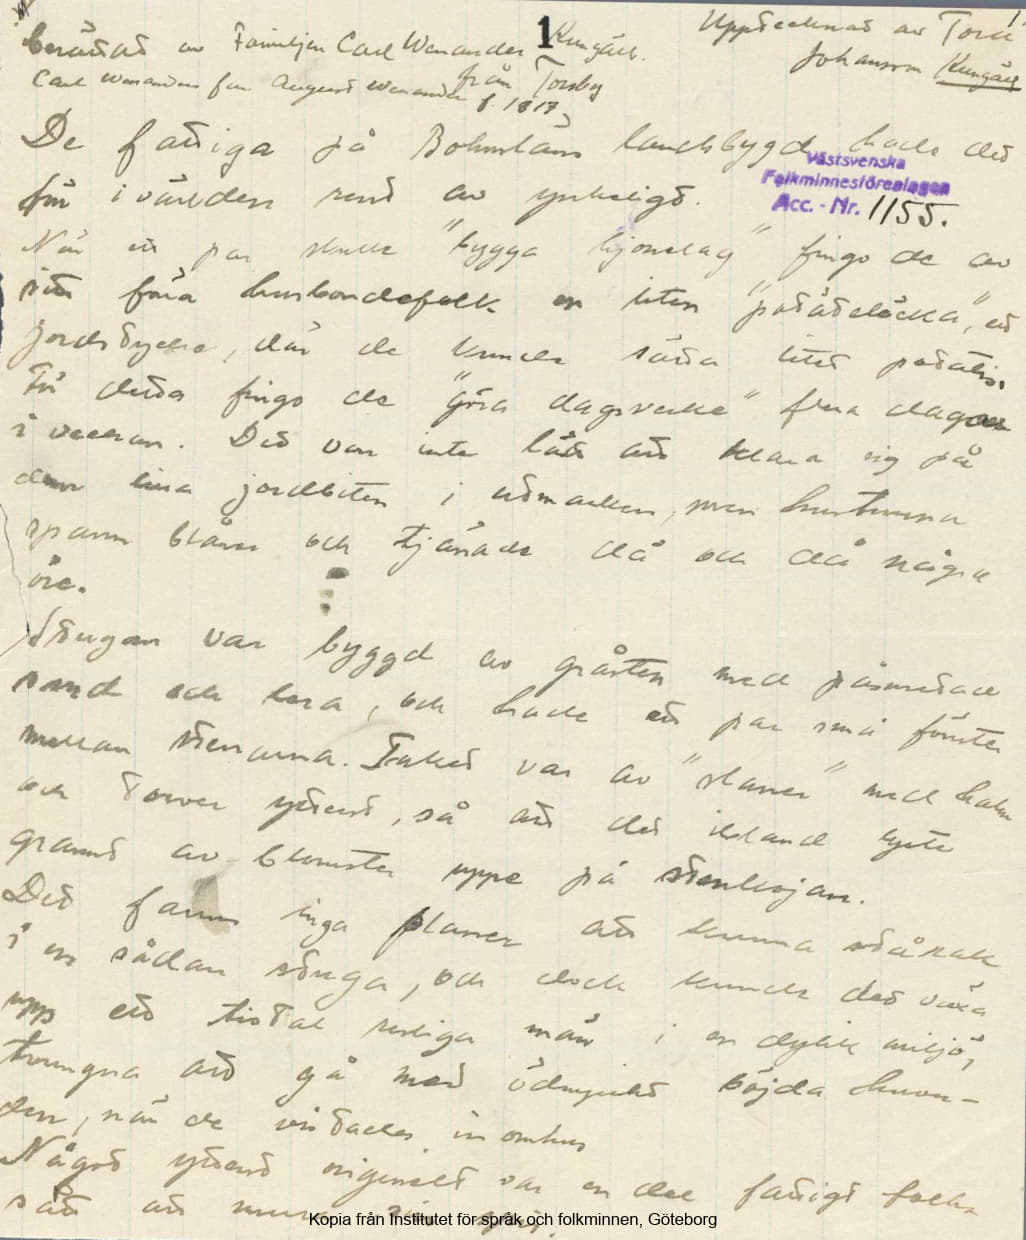 1
Berättat av Familjen Carl Wenander Kungälv.
Upptecknat av Tora
Johansson Kungälv
från Torsby
Carl Wenanders far August Wenander f. 1817,
De fattiga på Bohusläns landsbygd hade det
Västsvenska
Folkminnesföreningen
Acc. - Nr. 1155.
för i världen rent av ynkligt.
När ett par skulle "bygga hjonelag" fingo de av
sitt förra husbondefolk en liten "potätelöcka", ett
jordstycke, där de kunde sätta litet potatis.
För detta fingo de "göra dagsverke" flera dagar
i veckan. Det var inte lätt att klara sig på
den lilla jordbiten i utmarken, men hustrurna
spann blånor och tjänade då och då några
öre.
Stugan var byggd av gråsten med påsmetad
sand och lera, och hade ett par små fönster
mellan stenarna. Taket var av "slaner" med halm
och torver ytterst, så att det ibland lyste
grannt av blomster uppe på
Det fanns inga planer att kunna
i en sådan stuga, och dock kunde det växa
upp ett tiotal resliga män i en dylik miljö,
tvungna att gå med ödmjukt böjda huvu-
den, när de vistades inomhus
Något ytterst originellt var en del fattigt folks
sätt att mura sin spis.
Kopia från Institutet för språk och folkminnen, Göteborg